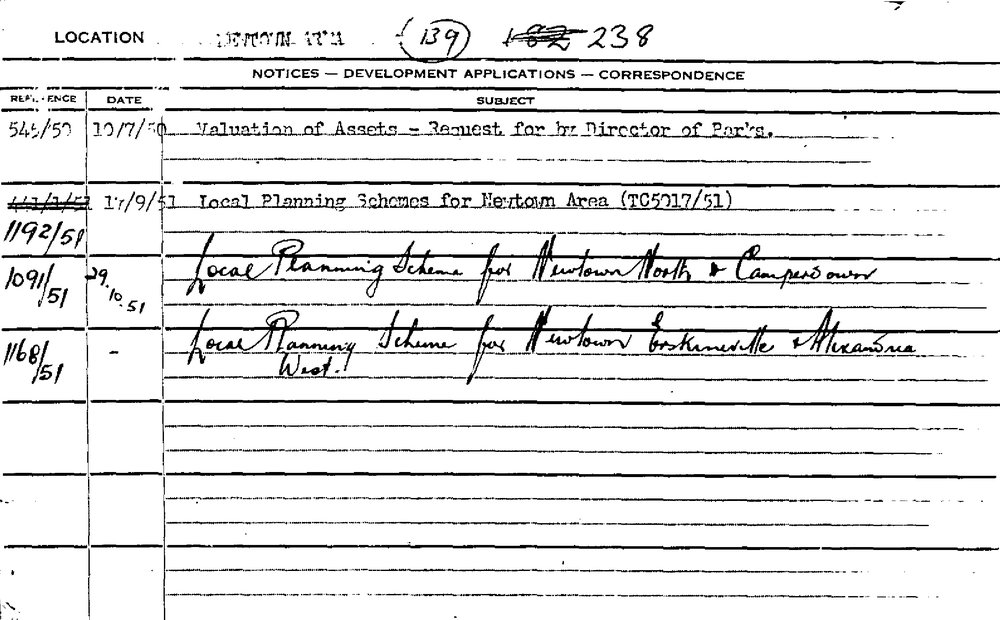 LOCATION NEWTOWN (139) 182 238
NOTICES — DEVELOPMENT APPLICATIONS — CORRESPONDENCE
REFERENCE DATE SUBJECT
545/50 10/7/50 Valuation of Assets - Request for by Director of Parks.
17/9/51 Local Planning Schemes for Newtown Area (TC5017/51)
1192/51
1091/51 29.10.51 Local Planning Scheme for Newtown North & Camperdown
1168/51 - Local Planning Scheme for Newtown Erskineville & Alexandria
West.